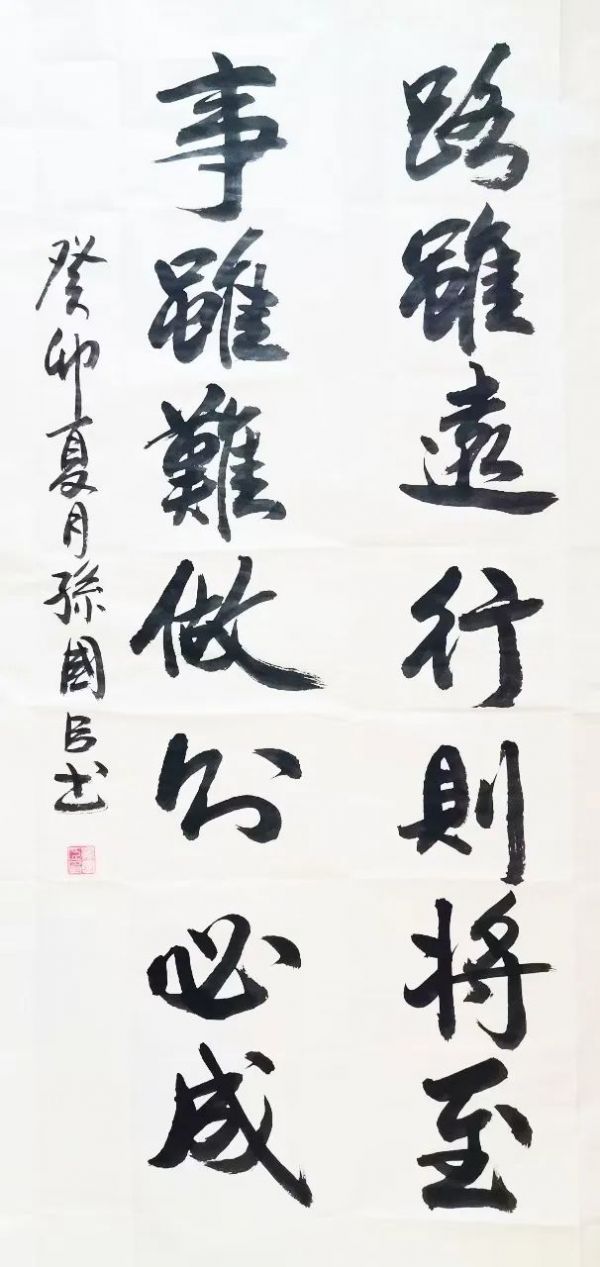 路雖遠行則將至
事雖難做則必成
癸卯夏月孫國臣書